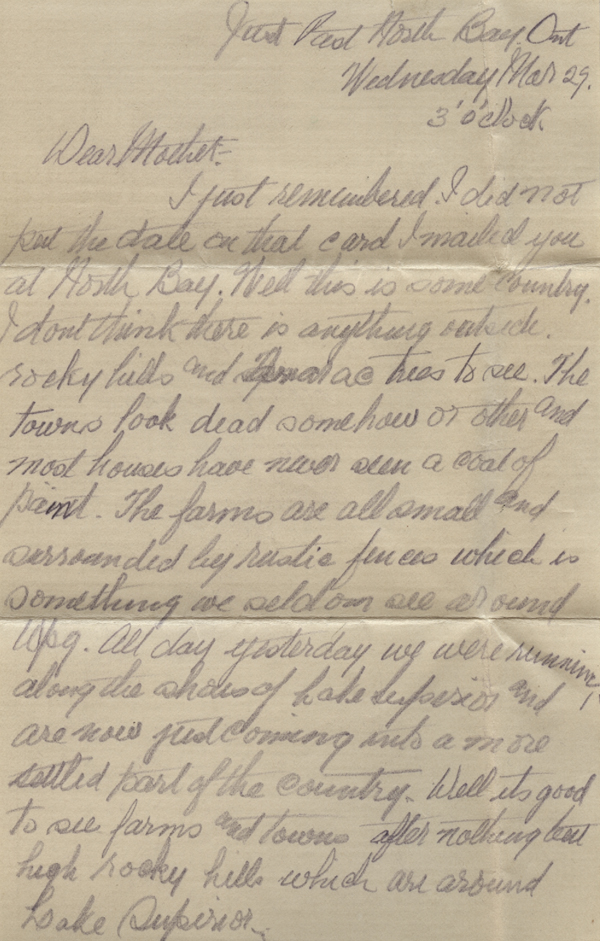 Just Past North Bay, Ont
Wednesday Mar 29.
3 o'clock
Dear Mother:-
I just remembered I did not
put the date on that card I mailed you
at North Bay. Well this is some country.
I dont think there is anything outside.
rocky hills and Tamarac trees to see. The
towns look dead somehow or other and
most houses have never seen a coat of
paint. The farms are all small and
surrounded by rustic fences which is
something we seldom see around
Wpg. All day yesterday we were running
along the shores of Lake Superior and
are now just coming into a more
settled part of the country. Well its good
to see farms and towns after nothing but
high rocky hills which are around
Lake Superior.